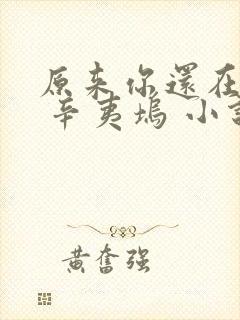 原来你還在
辛夷塢 小
黄奮强